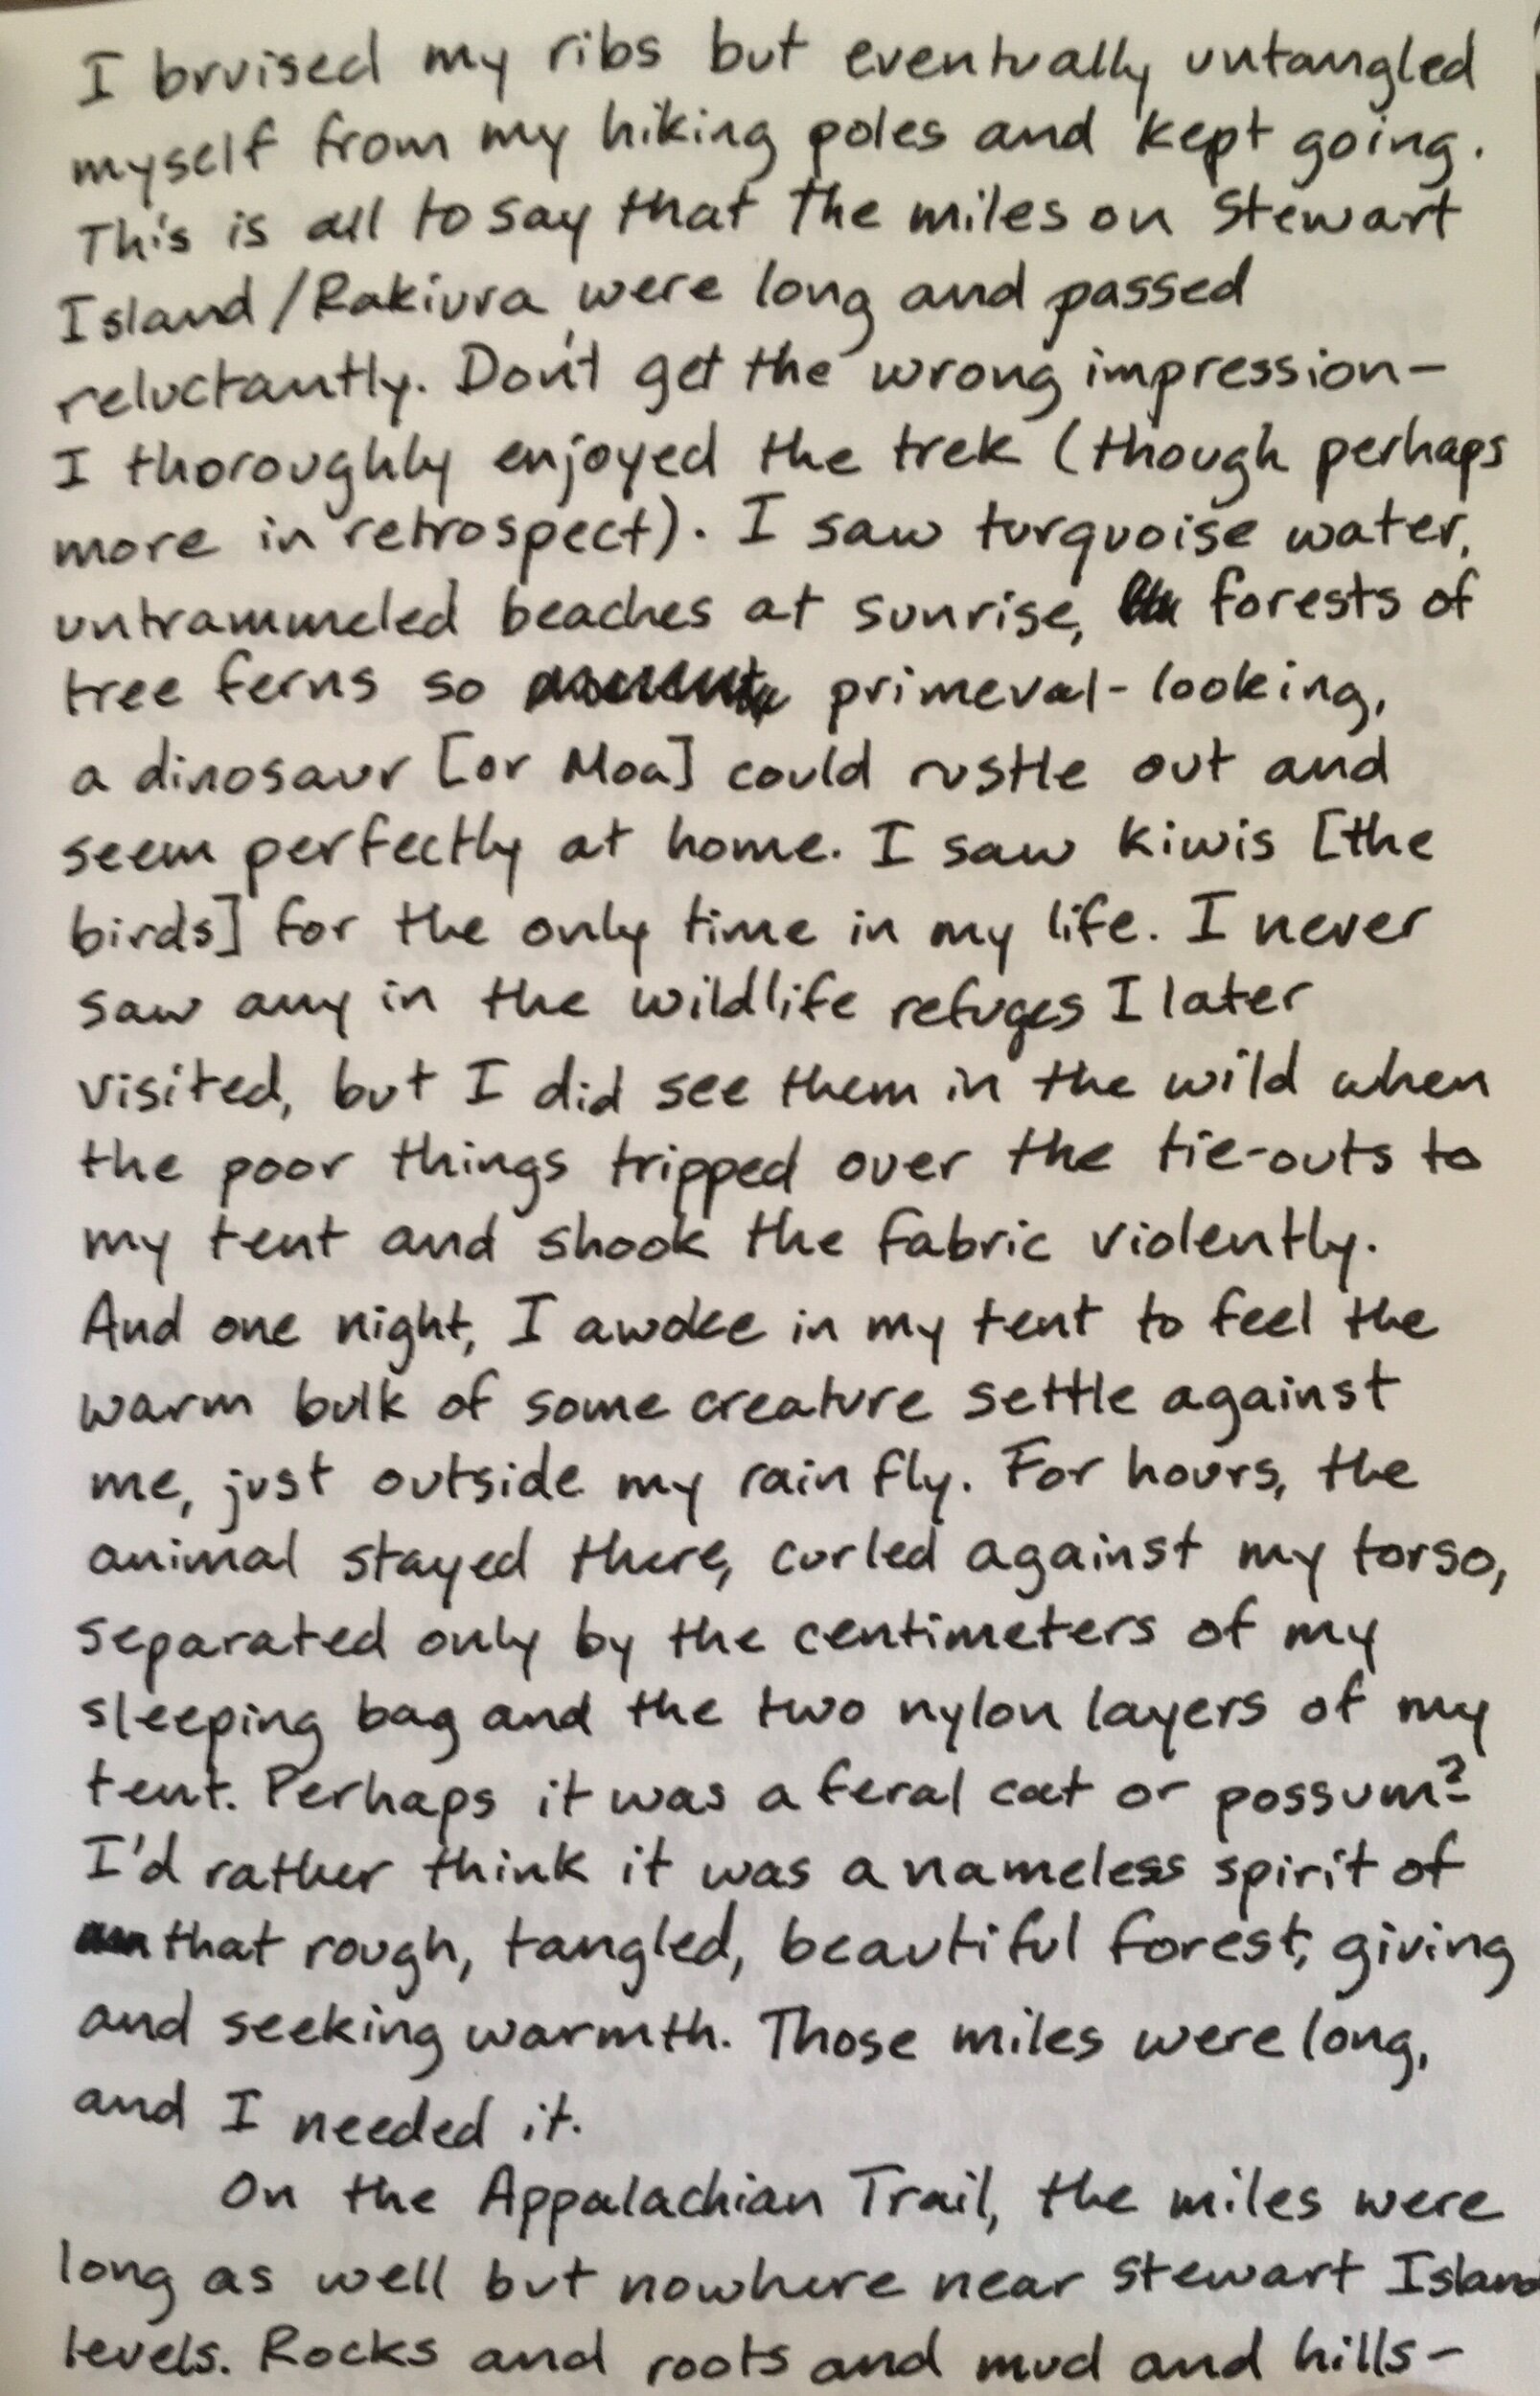 I bruised my ribs but eventually untangled
myself from my hiking poles and kept going.
This is all to say that the miles on Stewart
Island/Rakiura were long and passed
reluctantly. Don't get the wrong impression—
I thoroughly enjoyed the trek (though perhaps
more in retrospect). I saw turquoise water,
untrammeled beaches at sunrise, forests of
tree ferns so primeval-looking,
a dinosaur [or Moa] could rustle out and
seem perfectly at home. I saw kiwis [the
birds] for the only time in my life. I never
saw any in the wildlife refuges I later
visited, but I did see them in the wild when
the poor things tripped over the tie-outs to
my tent and shook the fabric violently.
And one night, I awoke in my tent to feel the
warm bulk of some creature settle against
me, just outside my rain fly. For hours, the
animal stayed there, curled against my torso,
separated only by the centimeters of my
sleeping bag and the two nylon layers of my
tent. Perhaps it was a feral cat or possum?
I'd rather think it was a nameless spirit of
that rough, tangled, beautiful forest, giving
and seeking warmth. Those miles were long,
and I needed it.
On the Appalachian Trail, the miles were
long as well but nowhere near Stewart Island
levels. Rocks and roots and mud and hills—